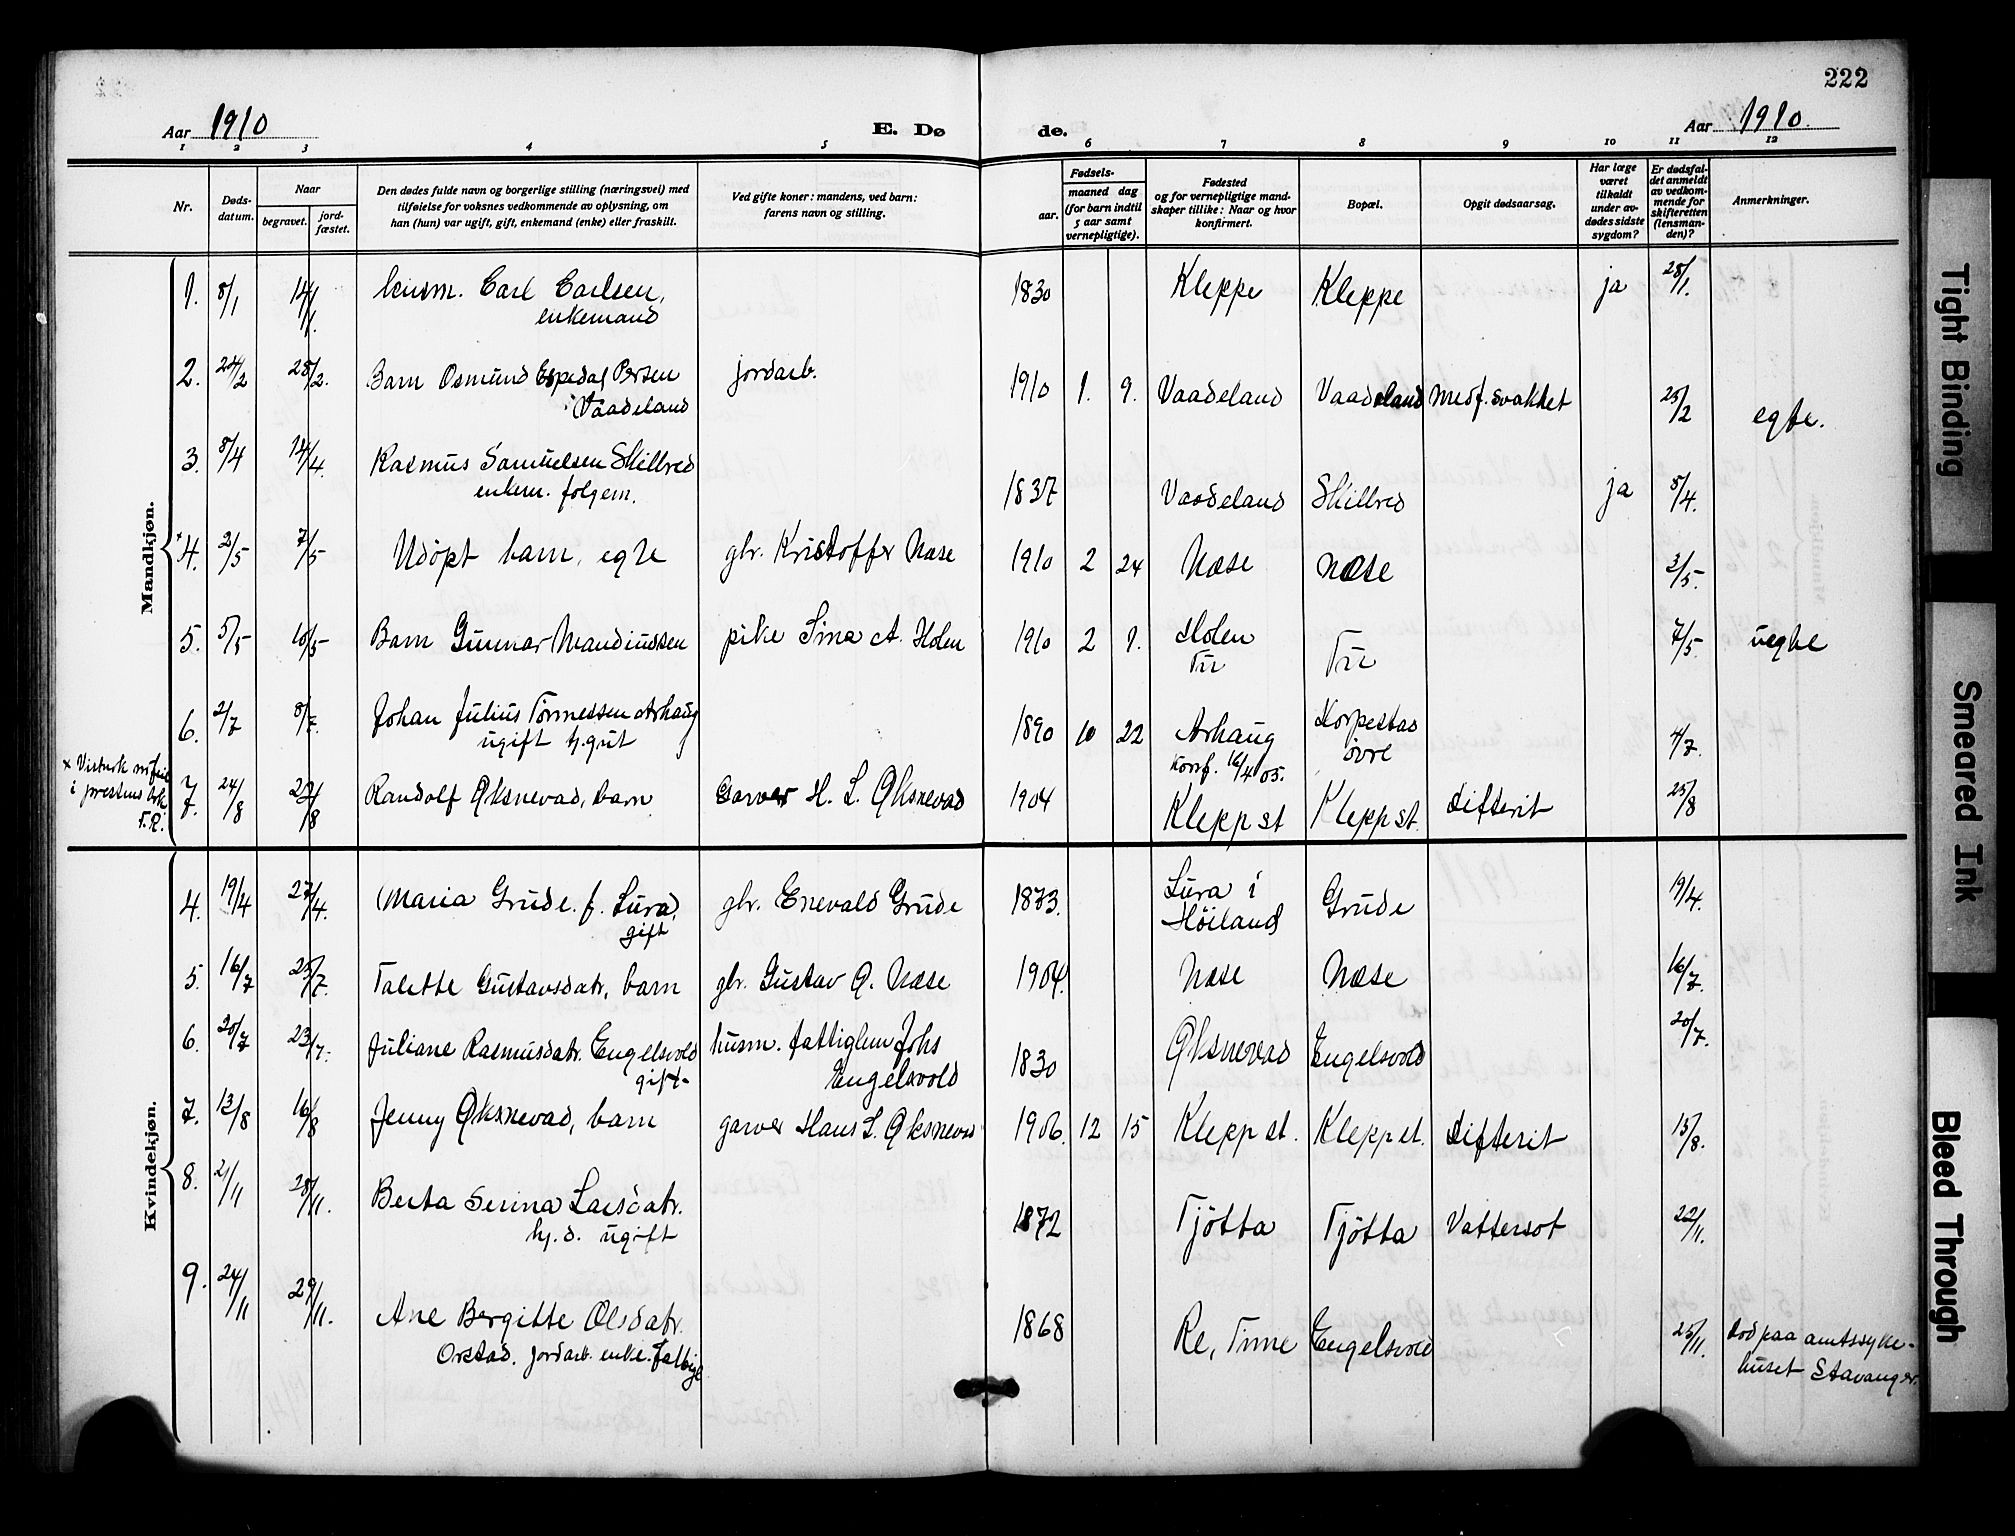 222
Aar 1910
E. Dø
de.
Aar 1910.
1 2 3 4 5 6 7 8 9 10 11 12
Nr.
Døds-
datum.
Naar
begravet.
jord-
fæstet.
Den dødes fulde navn og borgerlige stilling (næringsvei) med
tilføielse for voksnes vedkommende av oplysning, om
han (hun) var ugift, gift, enkemand (enke) eller fraskilt.
Ved gifte koner: mandens, ved barn:
farens navn og stilling.
Fødsels-
aar.
maaned dag
(for barn indtil
5 aar samt
vernepligtige).
Fødested
og for vernepligtige mand-
skaper tillike: Naar og hvor
konfirmert.
Bopæl.
Opgit dødsaarsag.
Har læge
været
tilkaldt
under av-
dødes sidste
sygdom?
Er dødsfal-
det anmeldt
av vedkom-
mende for
skifteretten
(lensman-
den)?
Anmerkninger.
Mandkjøn.
1. 8/1 14/1. husm. Carl Carlsen, 1830 Kleppe Kleppe ja 28/1.
enkemand
2. 24/2 28/2. Barn Osmund Espedal Persen jordarb. 1910 1. 9. Vaadeland Vaadeland Medf. svakhet 25/2 egte.
Vaadeland
3. 8/4 14/4. Rasmus Samuelsen Skillred 1837 Vaadeland Skillred ja 8/4.
enkem. folgem.
× 4. 2/5 7/5 Udöpt barn, egte gbr. Kristoffer Næse 1910 2 24 Næse Næse 3/5.
5. 5/5 10/5 Barn Gunnar Mandiussen pike Sina A. Holen 1910 2 9. Holen Tu 7/5. uegte
Tu
6. 2/7 8/7. Johan Julius Tönnessen Arhaug 1890 10 22 Arhaug Korpestad 4/7.
ugift tj. gut konf. 16/4 05. övre
× i prestens bok
T.R.
7. 24/8 29/8 Randolf Öksnevad, barn Garver H. L. Öksnevad 1904 Klepp st Klepp st. difterit 25/8
Kvindekjøn.
4. 19/4 27/4. Maria Grude f. Lura, gbr. Enevald Grude 1873. Lura i Grude 19/4.
gift Höiland
5. 16/7 23/7. Talette Gustavsdatr, barn gbr. Gustav O. Næse 1904. Næse Næse 16/7.
6. 20/7 23/7. Juliane Rasmusdatr. Engelsvold husm. fattiglem Johs 1830 Öksnevad Engelsvold 20/7.
gift Engelsvold
7. 13/8 16/8 Jenny Öksnevad, barn garver Hans L. Öksnevad 1906. 12 15 Klepp st. Klepp st. difterit 15/8.
8. 21/11 28/11. Berta Serina Larsdatr. 1872 Tjötta Tjötta Vattersot 22/11.
tj. d. ugift
9. 24/11 29/11. Ane Bergitte Olsdatr. 1868 Re, Time Engelsvold 25/11. död paa amtssyke-
Orstad. jordarb. enke. huset Stavanger.
Tight Binding
Smeared Ink
Bleed Through